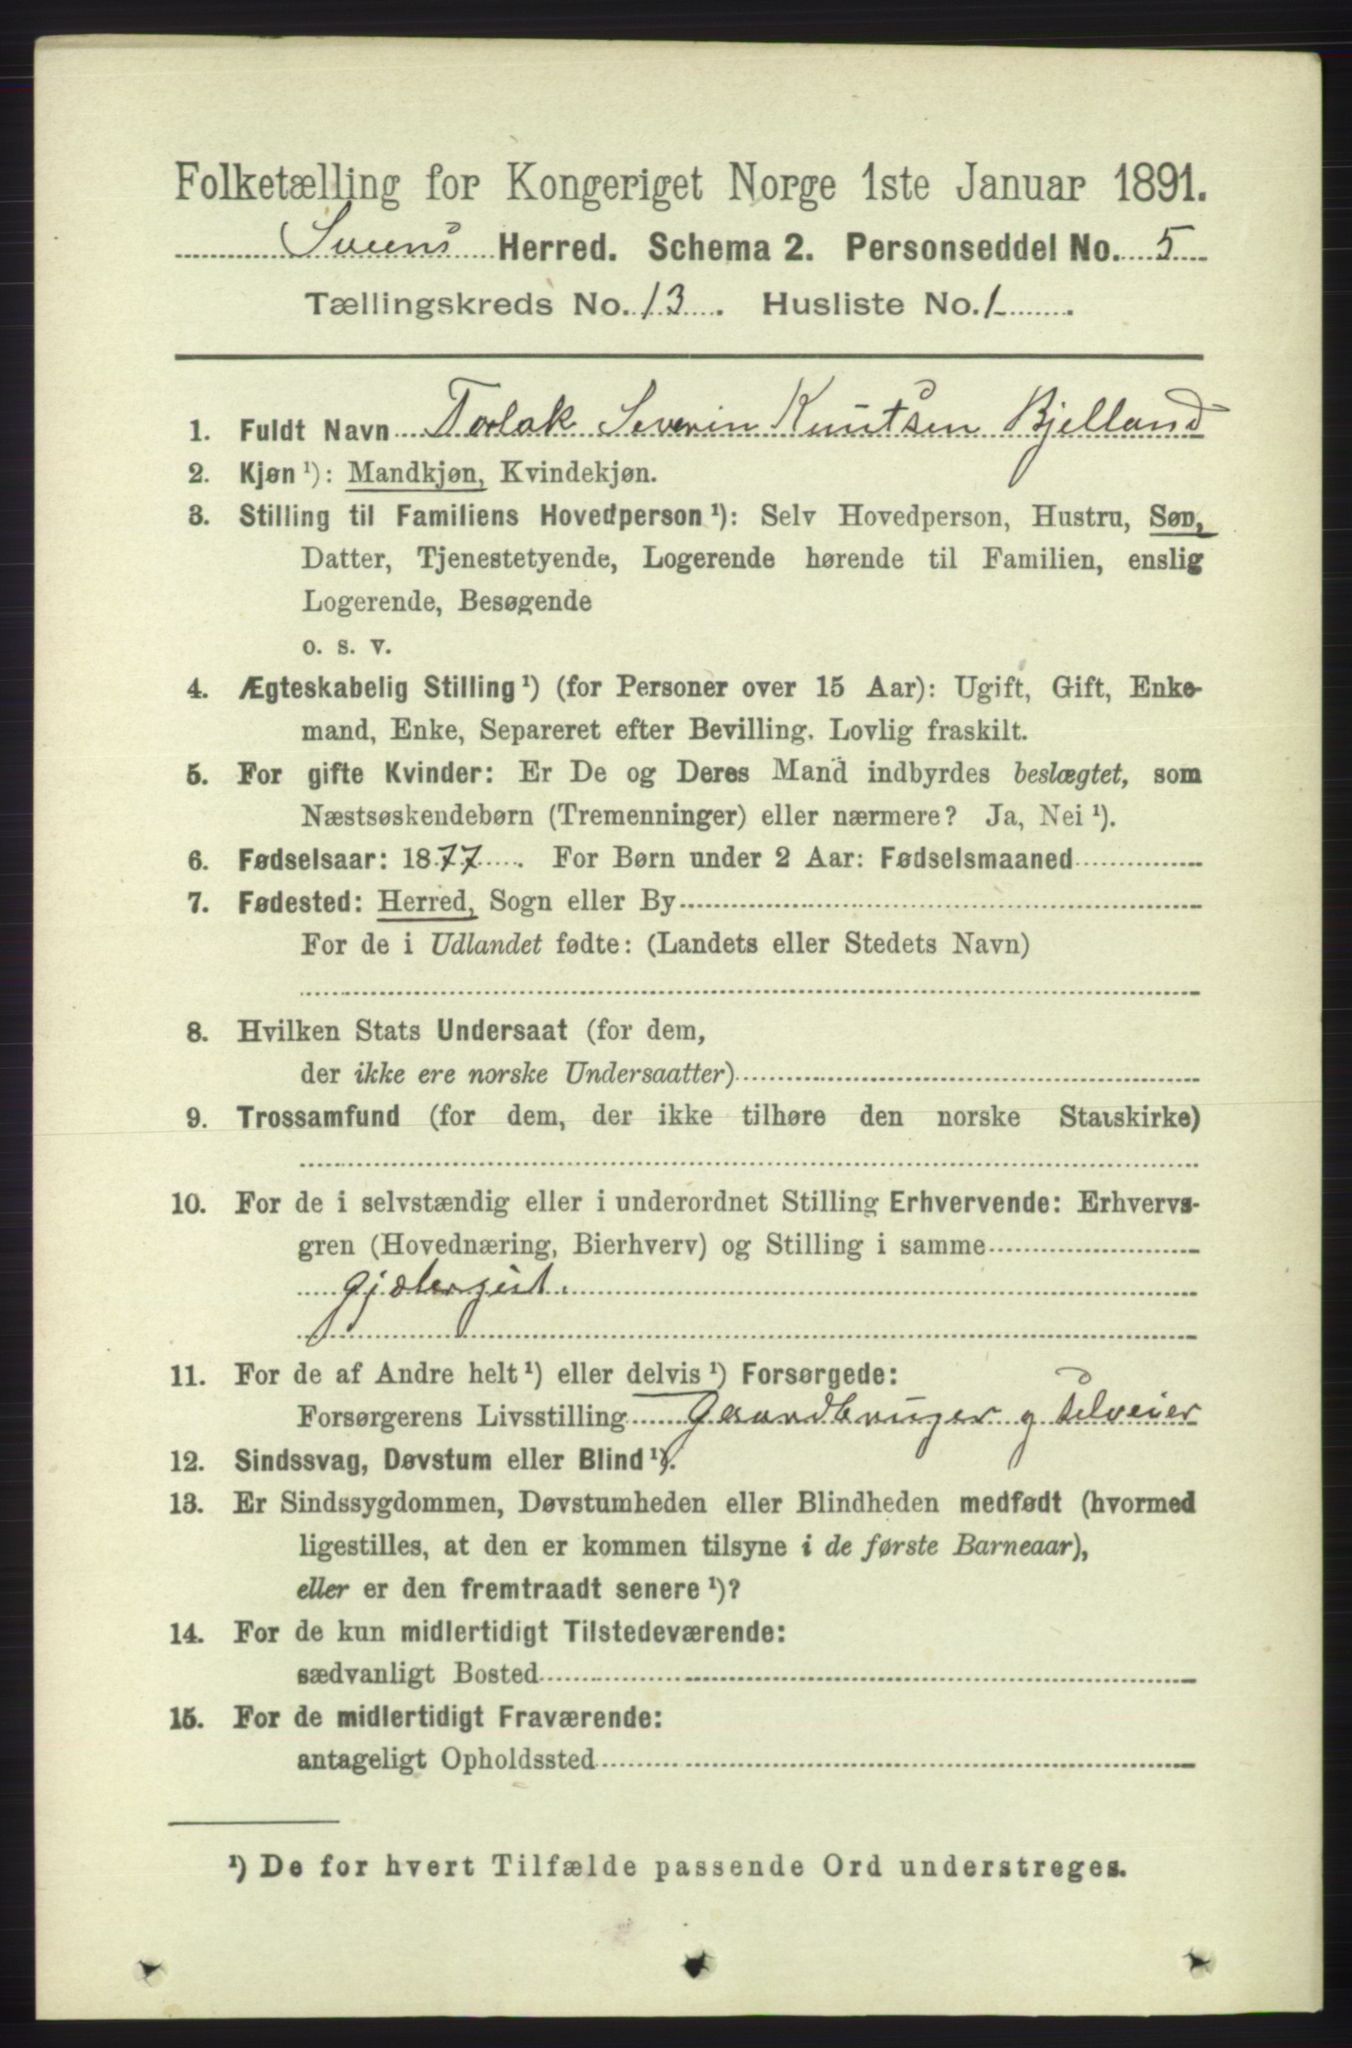 Folketælling for Kongeriget Norge 1ste Januar 1891.
Sveens Herred. Schema 2. Personseddel No. 5
Tællingskreds No. 13. Husliste No. 1.
1. Fuldt Navn Torlak Severin Knutsen Bjelland
2. Kjøn ¹): Mandkjøn, Kvindekjøn.
3. Stilling til Familiens Hovedperson ¹): Selv Hovedperson, Hustru, Søn,
Datter, Tjenestetyende, Logerende hørende til Familien, enslig
Logerende, Besøgende
o. s. v.
4. Ægteskabelig Stilling ¹) (for Personer over 15 Aar): Ugift, Gift, Enke-
mand, Enke, Separeret efter Bevilling. Lovlig fraskilt.
5. For gifte Kvinder: Er De og Deres Mand indbyrdes beslægtet, som
Næstsøskendebørn (Tremenninger) eller nærmere? Ja, Nei ¹).
6. Fødselsaar: 1877. For Børn under 2 Aar: Fødselsmaaned
7. Fødested: Herred, Sogn eller By
For de i Udlandet fødte: (Landets eller Stedets Navn)
8. Hvilken Stats Undersaat (for dem,
der ikke ere norske Undersaatter)
9. Trossamfund (for dem, der ikke tilhøre den norske Statskirke)
10. For de i selvstændig eller i underordnet Stilling Erhvervende: Erhvervs-
gren (Hovednæring, Bierhverv) og Stilling i samme
Gjætergut.
11. For de af Andre helt ¹) eller delvis ¹) Forsørgede:
Forsørgerens Livsstilling Gaardbruger og selveier
12. Sindssvag, Døvstum eller Blind ¹).
13. Er Sindssygdommen, Døvstumheden eller Blindheden medfødt (hvormed
ligestilles, at den er kommen tilsyne i de første Barneaar),
eller er den fremtraadt senere ¹)?
14. For de kun midlertidigt Tilstedeværende:
sædvanligt Bosted
15. For de midlertidigt Fraværende:
antageligt Opholdssted
¹) De for hvert Tilfælde passende Ord understreges.